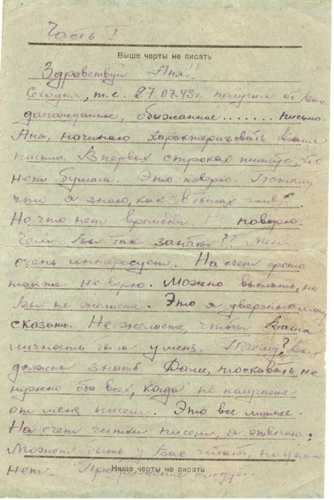 Часть I
Выше черты не писать
Здравствуй Аня!!
Сегодня, т.е. 27.07.43г. получил от Вас
долгожданное, обыжанное ....... письмо.
Аня, начинаю характеризовать Ваше
письмо. В первых строках пишите, что
нет бумаги. Это поверю. Потому
что я знаю, как в тылах
Но что нет времени не поверю.
Чем Вы так заняты?? Меня
очень интересует. На счет фото
также не верю. Можно выслать, но
Вы не желаете. Это я уверенно могу
сказать. Не желаете, чтобы Ваша
личность была у меня. Почему? Вы
должны знать. Далее, тосковать не
нужно обо всех, когда не получаете
от меня писем. Это все лишнее.
На счет читки писем, я отвечаю:
Может быть у Вас читать, но у нас
нет. Продолжение следует.
Ниже черты не писать